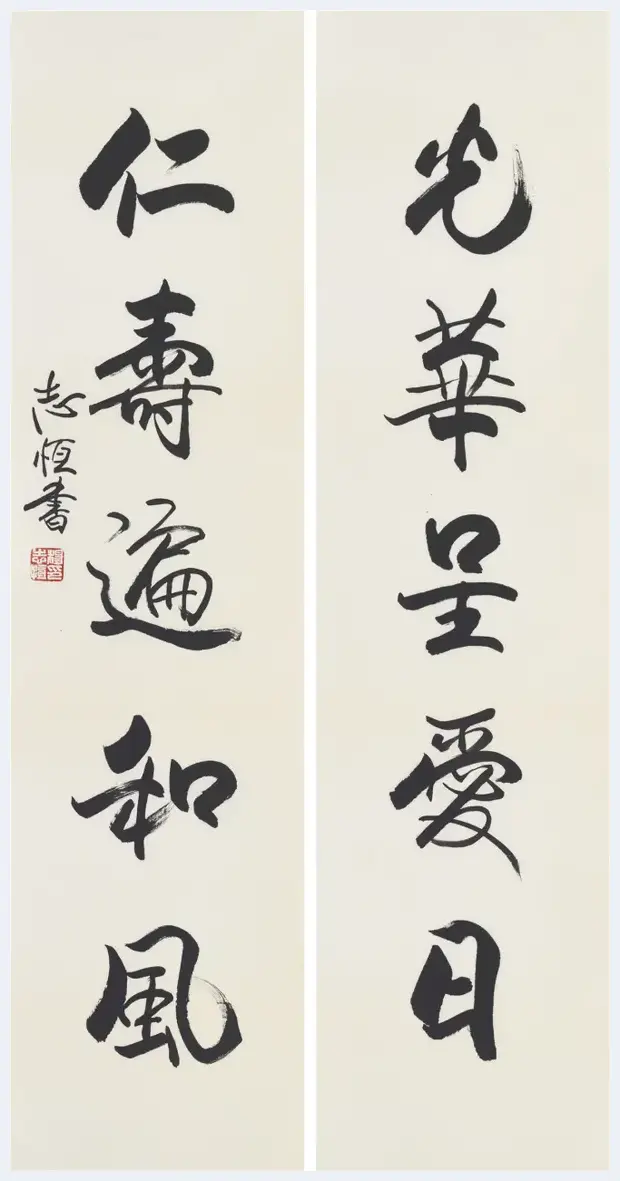 光華呈愛日
仁壽遍和風
志恒書